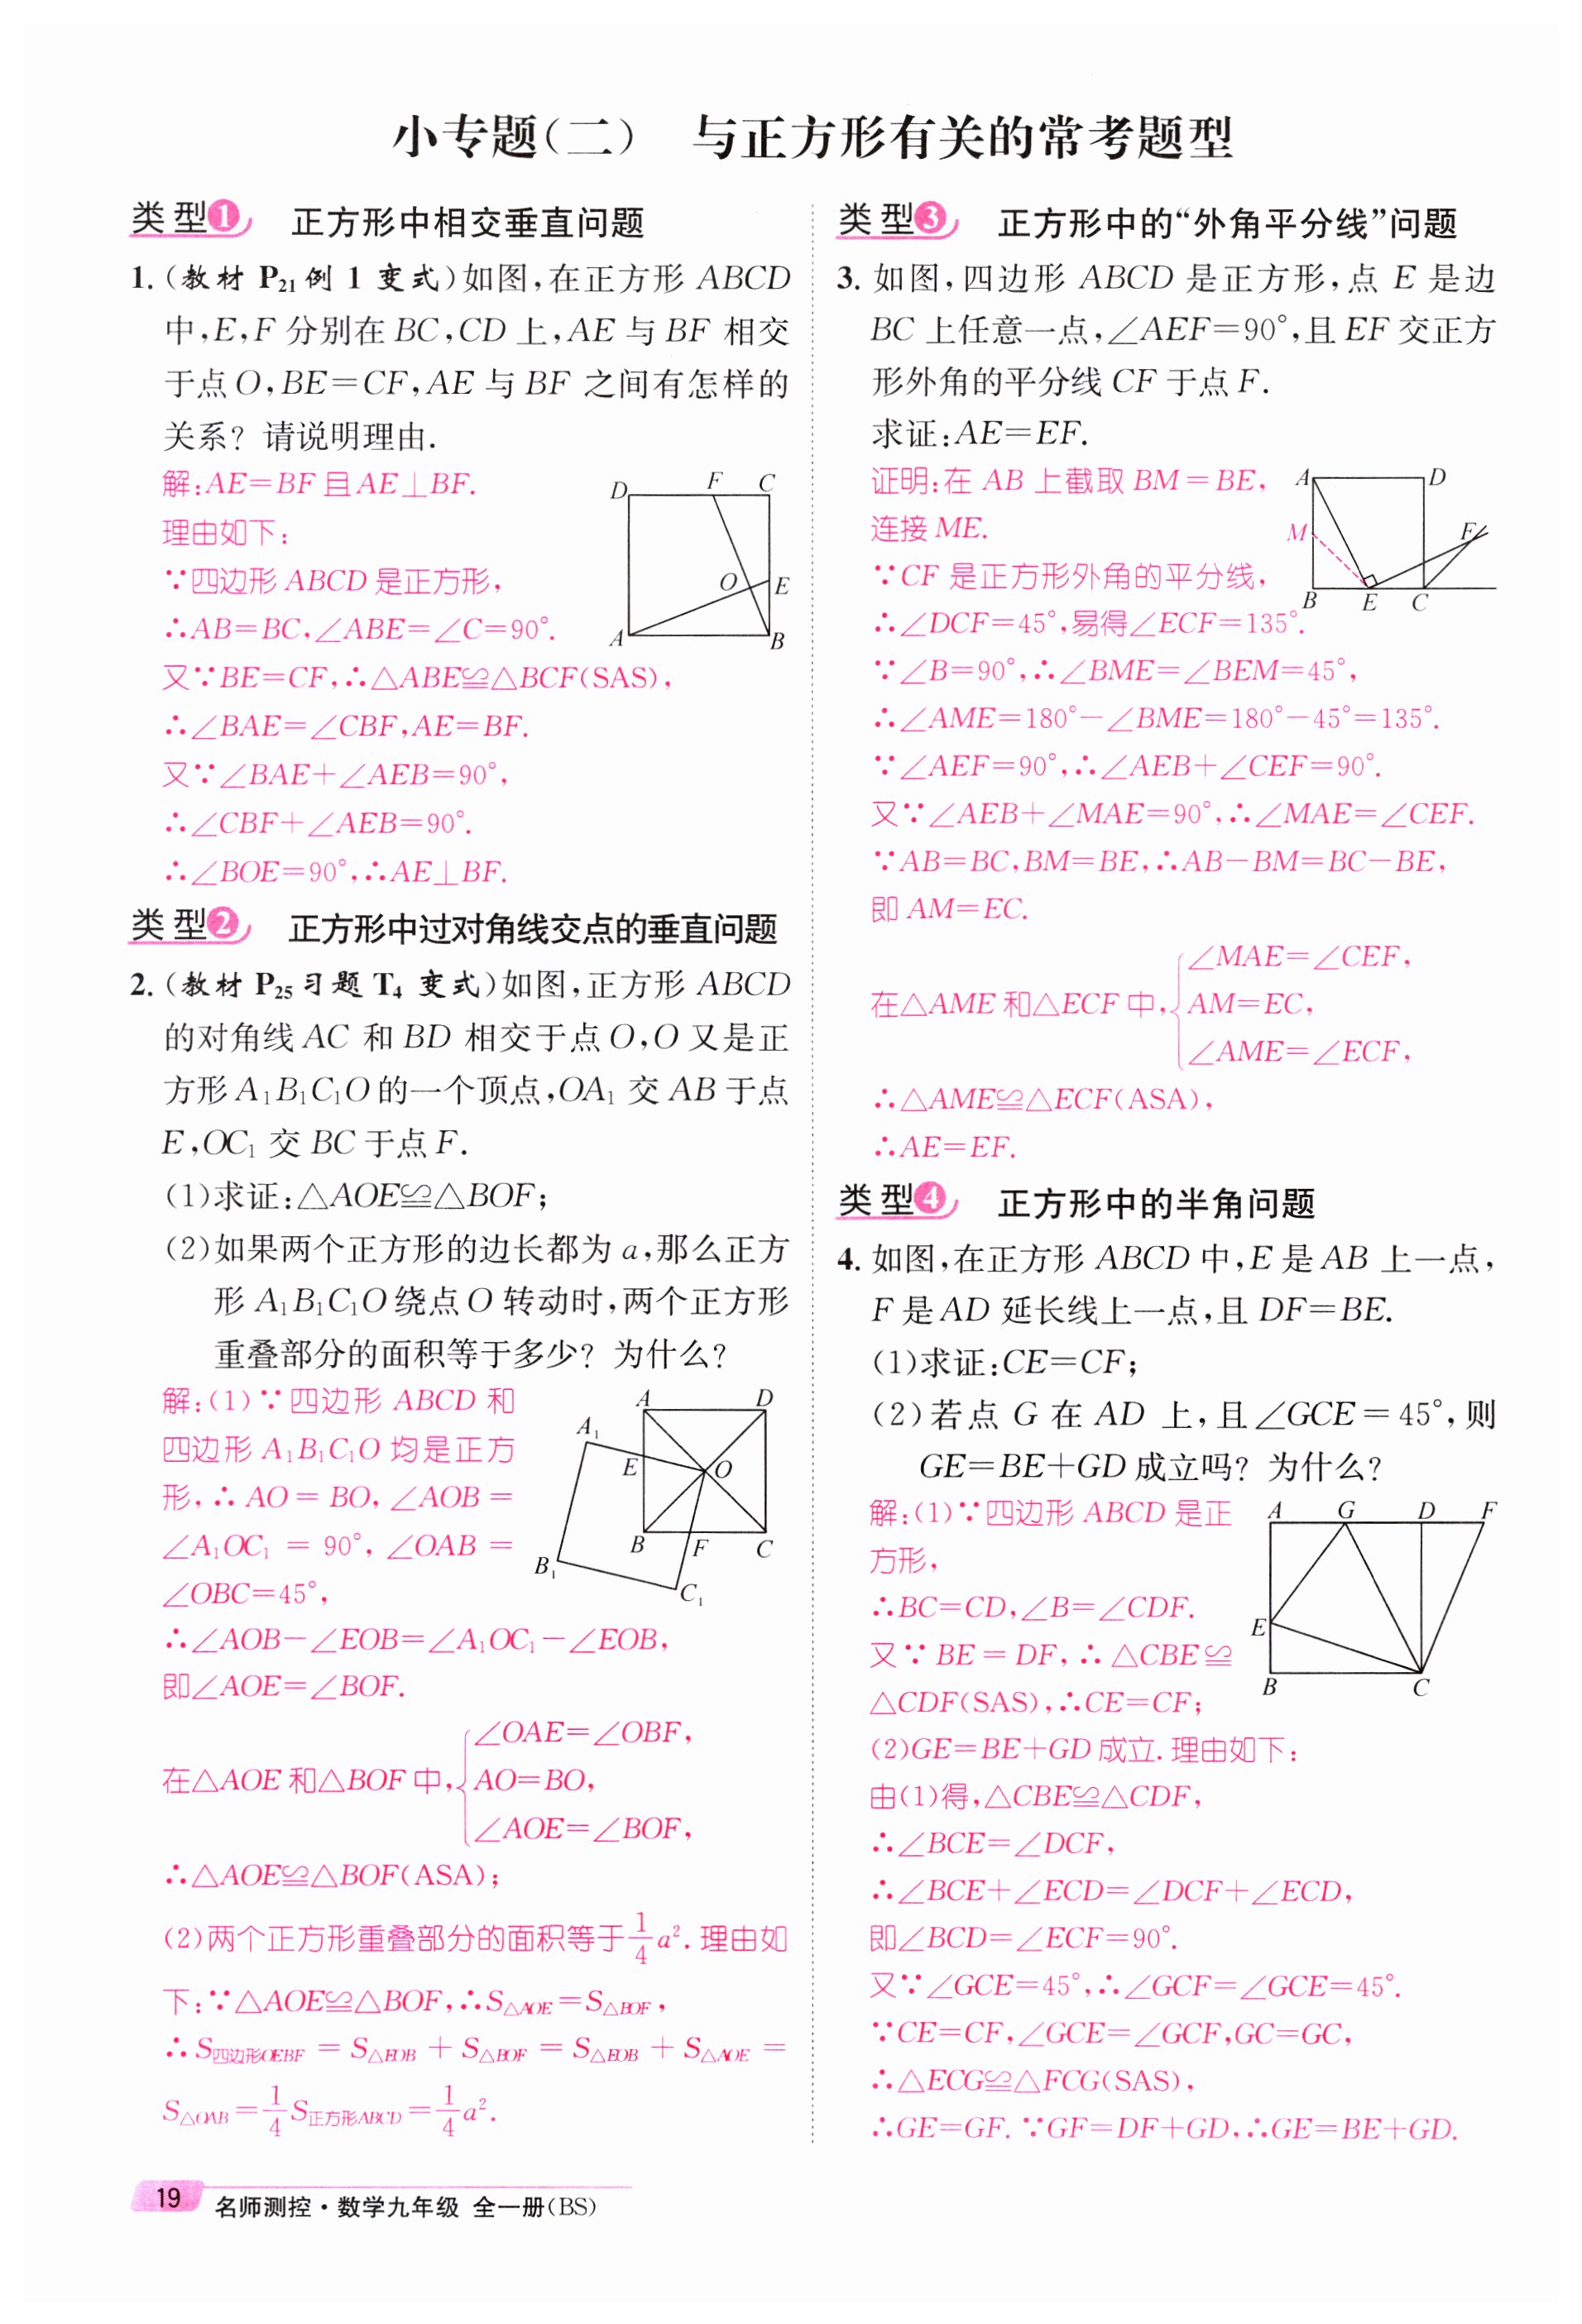 小专题(二) 与正方形有关的常考题型
类型1 正方形中相交垂直问题
1.(教材 P₂₁例 1 变式)如图,在正方形 ABCD
中,E,F 分别在 BC,CD 上,AE 与 BF 相交
于点 O,BE=CF,AE 与 BF 之间有怎样的
关系? 请说明理由.
解:AE=BF 且 AE⊥BF.
理由如下:
∵四边形 ABCD 是正方形,
∴AB=BC,∠ABE=∠C=90°.
又∵BE=CF,∴△ABE≌△BCF(SAS),
∴∠BAE=∠CBF,AE=BF.
又∵∠BAE+∠AEB=90°,
∴∠CBF+∠AEB=90°.
∴∠BOE=90°,∴AE⊥BF.
D F C
O E
A B
类型2 正方形中过对角线交点的垂直问题
2.(教材 P₂₅习题 T₄ 变式)如图,正方形 ABCD
的对角线 AC 和 BD 相交于点 O,O 又是正
方形 A₁B₁C₁O 的一个顶点,OA₁ 交 AB 于点
E,OC₁ 交 BC 于点 F.
(1)求证:△AOE≌△BOF;
(2)如果两个正方形的边长都为 a,那么正方
形 A₁B₁C₁O 绕点 O 转动时,两个正方形
重叠部分的面积等于多少? 为什么?
解:(1)∵四边形 ABCD 和
四边形 A₁B₁C₁O 均是正方
形,∴AO=BO,∠AOB=
∠A₁OC₁=90°,∠OAB=
∠OBC=45°,
∴∠AOB-∠EOB=∠A₁OC₁-∠EOB,
即∠AOE=∠BOF.
A D
A₁
E O
B F C
B₁
C₁
∠OAE=∠OBF,
在△AOE 和△BOF 中,{AO=BO,
∠AOE=∠BOF,
∴△AOE≌△BOF(ASA);
(2)两个正方形重叠部分的面积等于1/4a².理由如
下:∵△AOE≌△BOF,∴S△AOE=S△BOF,
∴S四边形OEBF=S△EOB+S△BOF=S△EOB+S△AOE=
S△OAB=1/4S正方形ABCD=1/4a².
类型3 正方形中的“外角平分线”问题
3. 如图,四边形 ABCD 是正方形,点 E 是边
BC 上任意一点,∠AEF=90°,且 EF 交正方
形外角的平分线 CF 于点 F.
求证:AE=EF.
证明:在 AB 上截取 BM=BE,
连接 ME.
∵CF 是正方形外角的平分线,
∴∠DCF=45°,易得∠ECF=135°.
∵∠B=90°,∴∠BME=∠BEM=45°,
∴∠AME=180°-∠BME=180°-45°=135°.
∵∠AEF=90°,∴∠AEB+∠CEF=90°.
又∵∠AEB+∠MAE=90°,∴∠MAE=∠CEF.
∵AB=BC,BM=BE,∴AB-BM=BC-BE,
即 AM=EC.
A D
M F
B E C
∠MAE=∠CEF,
在△AME 和△ECF 中,{AM=EC,
∠AME=∠ECF,
∴△AME≌△ECF(ASA),
∴AE=EF.
类型4 正方形中的半角问题
4. 如图,在正方形 ABCD 中,E 是 AB 上一点,
F 是 AD 延长线上一点,且 DF=BE.
(1)求证:CE=CF;
(2)若点 G 在 AD 上,且∠GCE=45°,则
GE=BE+GD 成立吗? 为什么?
解:(1)∵四边形 ABCD 是正
方形,
∴BC=CD,∠B=∠CDF.
又∵BE=DF,∴△CBE≌
△CDF(SAS),∴CE=CF;
A G D F
E
B C
(2)GE=BE+GD 成立.理由如下:
由(1)得,△CBE≌△CDF,
∴∠BCE=∠DCF,
∴∠BCE+∠ECD=∠DCF+∠ECD,
即∠BCD=∠ECF=90°.
又∵∠GCE=45°,∴∠GCF=∠GCE=45°.
∵CE=CF,∠GCE=∠GCF,GC=GC,
∴△ECG≌△FCG(SAS),
∴GE=GF.∵GF=DF+GD,∴GE=BE+GD.
19 名师测控·数学九年级 全一册(BS)